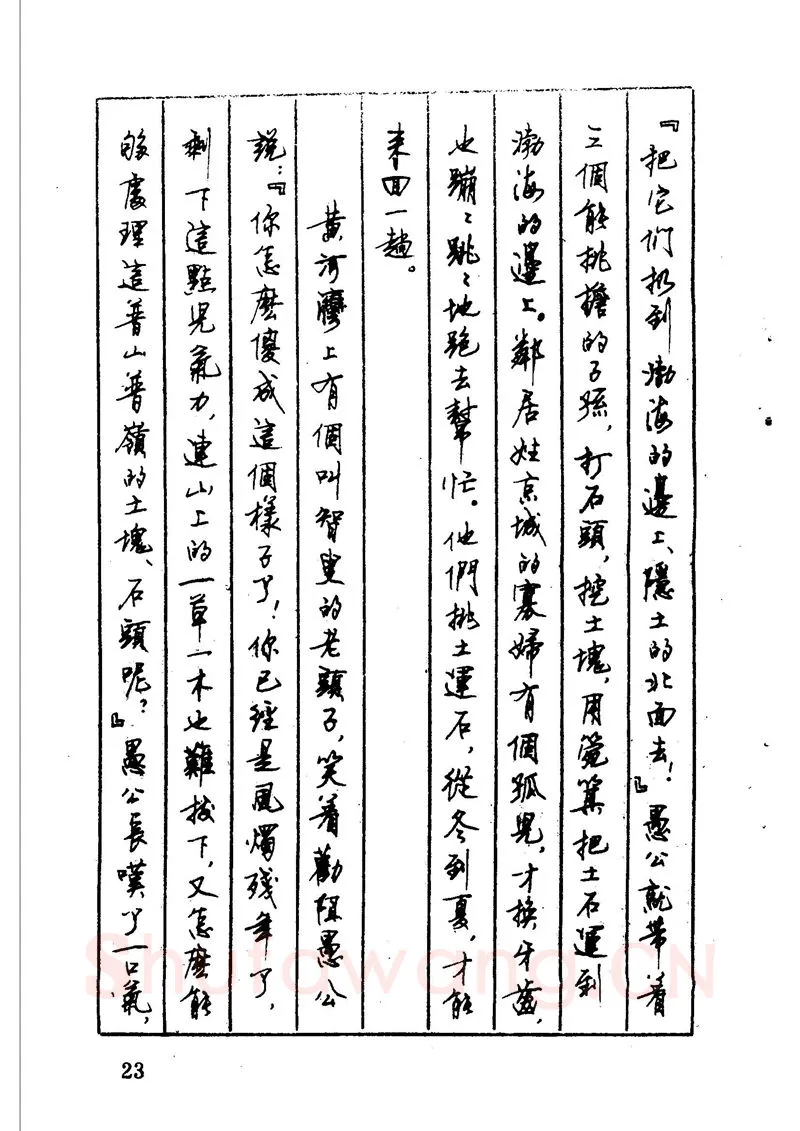 『把它們扔到渤海的邊上、隱土的北面去！』愚公就帶着
三個能挑擔的子孫，打石頭，挖土塊，用箢箕把土石運到
渤海的邊上。鄰居姓京城的寡婦有個孤兒，才換牙齒，
也蹦〻跳〻地跑去幫忙。他們挑土運石，從冬到夏，才能
来回一趟。
黃河灣上有個叫智叟的老頭子，笑着勸阻愚公
説：『你怎麽傻成這個樣子了！你已經是風燭残年了，
剩下這點兒氣力，連山上的一草一木也難拔下，又怎麽能
够處理這普山普嶺的土塊、石頭呢？』愚公長嘆了一口氣，
23
Shufawang.CN